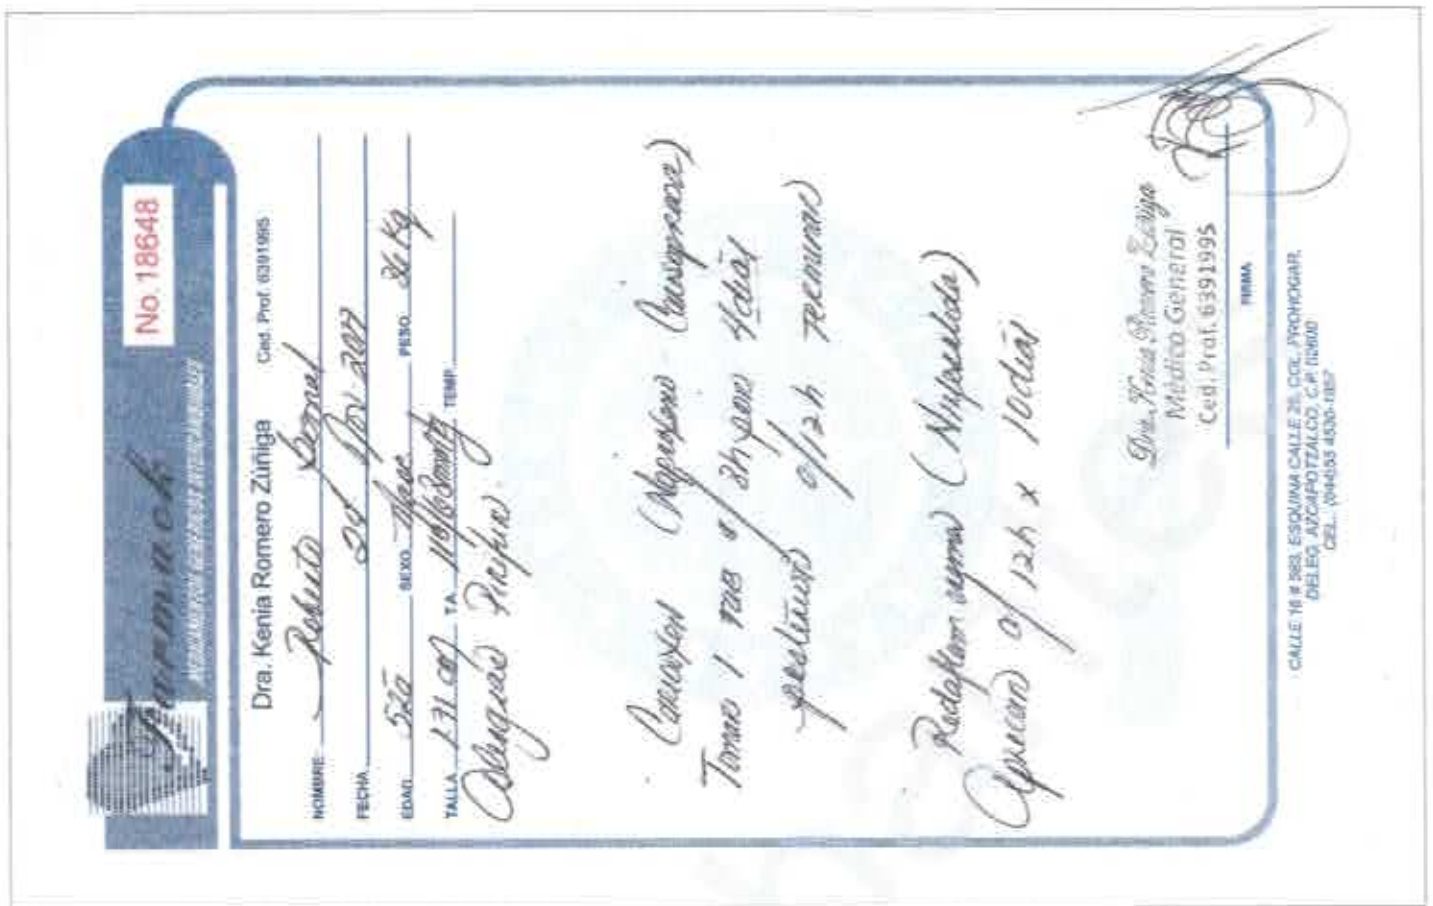 Farmach
No. 18648
Dra. Kenia Romero Zúñiga Ced. Prof. 6391995
NOMBRE: Roberto Bernal
FECHA 24 Nov 2017
EDAD 52a SEXO Masc PESO 86 Kg
TALLA 1.71 TA 110/80mmHg TEMP.
Alergias
(Naproxeno - Carisoprodol)
Tomar 1 tab c/ 8h por 4 días
c/12h terminar
Redaflam crema (Nimesulida)
Aplicar c/ 12h x 10 días
Dra. Kenia Romero Zúñiga
Médico General
Ced. Prof. 6391995
FIRMA
CALLE 16 # 583, ESQUINA CALLE 25, COL. PROHOGAR,
DELEG. AZCAPOTZALCO, C.P. 02600
CEL.